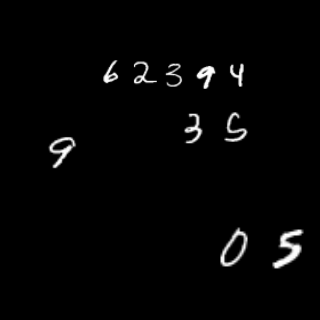 6 2 3 9 4
3 5
9
0 5